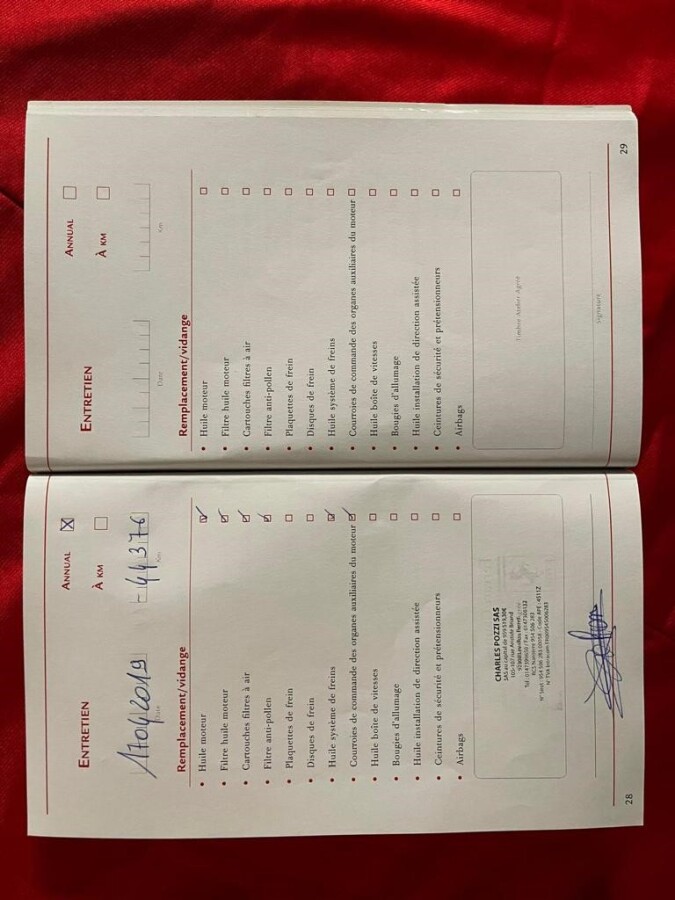 ENTRETIEN
ANNUAL
À KM
17/04/2019
44376
Date
Km
Remplacement/vidange
• Huile moteur
• Filtre huile moteur
• Cartouches filtres à air
• Filtre anti-pollen
• Plaquettes de frein
• Disques de frein
• Huile système de freins
• Courroies de commande des organes auxiliaires du moteur
• Huile boîte de vitesses
• Bougies d'allumage
• Huile installation de direction assistée
• Ceintures de sécurité et prétensionneurs
• Airbags
CHARLES POZZI SAS
28
ENTRETIEN
ANNUAL
À KM
Date
Km
Remplacement/vidange
• Huile moteur
• Filtre huile moteur
• Cartouches filtres à air
• Filtre anti-pollen
• Plaquettes de frein
• Disques de frein
• Huile système de freins
• Courroies de commande des organes auxiliaires du moteur
• Huile boîte de vitesses
• Bougies d'allumage
• Huile installation de direction assistée
• Ceintures de sécurité et prétensionneurs
• Airbags
Timbre Atelier Agréé
Signature
29